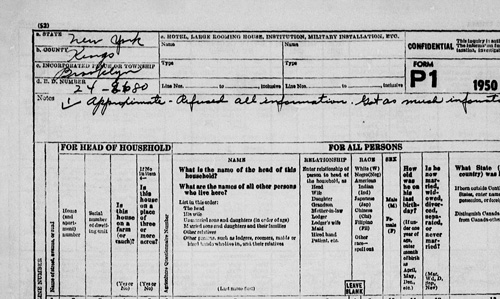 (52)
a. STATE New York
b. COUNTY Kings
c. INCORPORATED PLACE OR TOWNSHIP Brooklyn
d. E. D. NUMBER 24 -
e. HOTEL, LARGE ROOMING HOUSE, INSTITUTION, MILITARY INSTALLATION, ETC.
Name Name
Type Type
Line Nos. to , inclusive Line Nos. to , inclusive
CONFIDENTIAL
FORM
P1 1950
Notes Approximate - Refused all information. Got as much
FOR HEAD OF HOUSEHOLD FOR ALL PERSONS
LINE NUMBER
Name of street, avenue, or road
House (and apartment) number
Serial number of dwelling unit
Is this house on a farm (or ranch)?
(Yes or No)
If No in item
Is this house on a place of 3 or more acres?
(Yes or No)
Agriculture Questionnaire Number
NAME
What is the name of the head of this household?
What are the names of all other persons who live here?
List in this order:
The head
His wife
Unmarried sons and daughters (in order of age)
Married sons and daughters and their families
Other relatives
Other persons, such as lodgers, roomers, maids or hired hands who live in, and their relatives
(Last name first)
RELATIONSHIP
Enter relationship of person to head of the household, as
Head
Wife
Daughter
Grandson
Mother-in-law
Lodger
Lodger's wife
Maid
Hired hand
Patient, etc.
LEAVE BLANK
RACE
White (W)
Negro (Neg)
American Indian (Ind)
Japanese (Jap)
Chinese (Chi)
Filipino (Fil)
Other race—spell out
SEX
Male (M)
Female (F)
How old was he on his last birthday?
(If under one year of age, enter month of birth as April, May, Dec., etc.)
Is he now married, widowed, divorced, separated, or never married?
(Mar, Wd, D, Sep, Nev)
What State (or
country) was he